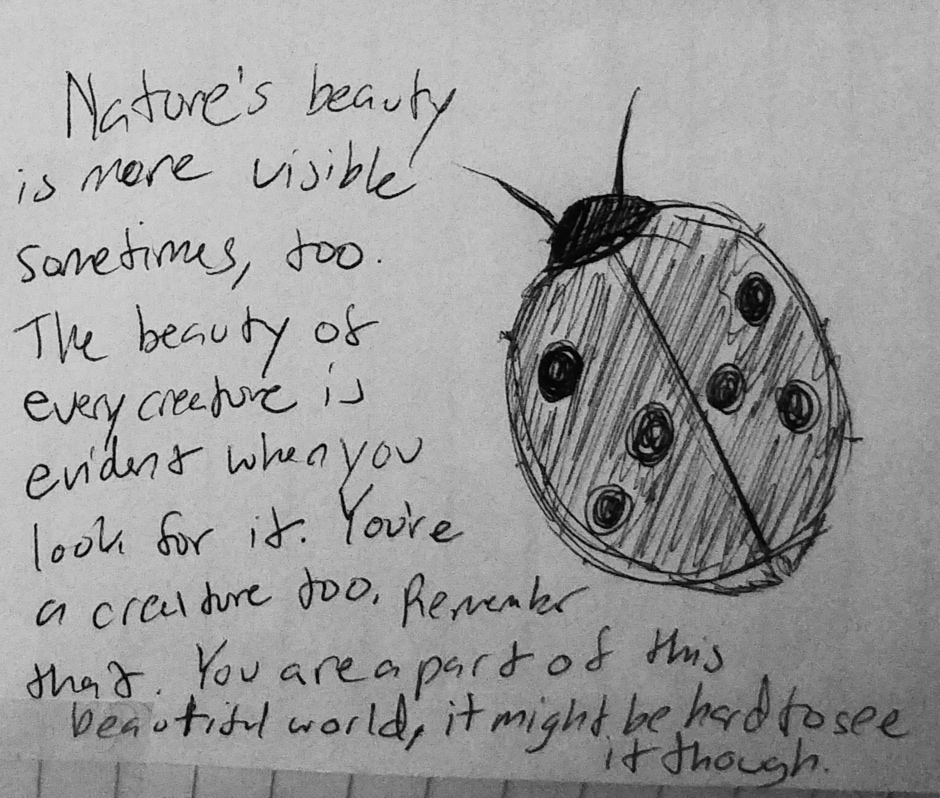 Nature's beauty
is more visible
sometimes, too.
The beauty of
every creature is
evident when you
look for it. You're
a creature too. Remember
that. You are a part of this
beautiful world, it might be hard to see
it though.